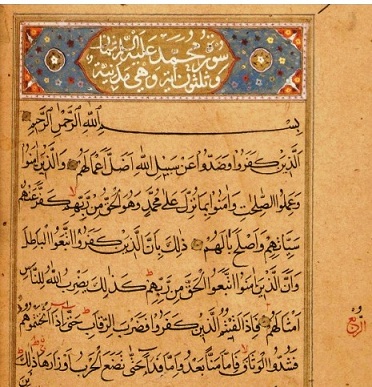 سورة محمد عليه السلام ثمان
وثلثون اية وهي مدنية
بِسْمِ اللَّهِ الرَّحْمٰنِ الرَّحِيمِ
الَّذِينَ كَفَرُوا وَصَدُّوا عَنْ سَبِيلِ اللَّهِ اَضَلَّ اَعْمَالَهُمْ وَالَّذِينَ اٰمَنُوا
وَعَمِلُوا الصّٰلِحٰتِ وَاٰمَنُوا بِمَا نُزِّلَ عَلٰى مُحَمَّدٍ وَهُوَ الْحَقُّ مِنْ رَبِّهِمْ كَفَّرَ عَنْهُمْ
سَيِّاٰتِهِمْ وَاَصْلَحَ بَالَهُمْ ذٰلِكَ بِاَنَّ الَّذِينَ كَفَرُوا اتَّبَعُوا الْبَاطِلَ
وَاَنَّ الَّذِينَ اٰمَنُوا اتَّبَعُوا الْحَقَّ مِنْ رَبِّهِمْ كَذٰلِكَ يَضْرِبُ اللَّهُ لِلنَّاسِ
اَمْثَالَهُمْ فَاِذَا لَقِيتُمُ الَّذِينَ كَفَرُوا فَضَرْبَ الرِّقَابِ حَتّٰى اِذَا اَثْخَنْتُمُوهُمْ
فَشُدُّوا الْوَثَاقَ فَاِمَّا مَنًّا بَعْدُ وَاِمَّا فِدَاءً حَتّٰى تَضَعَ الْحَرْبُ اَوْزَارَهَا ذٰلِكَ